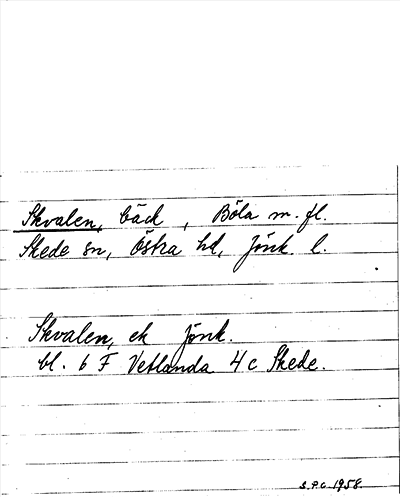 Skvalen, bäck, Böla m. fl.
Skede sn, Östra hd, Jönk. l.
Skvalen, ek Jönk.
bl. 6 F Vetlanda 4 c Skede.
S.P.C. 1958.